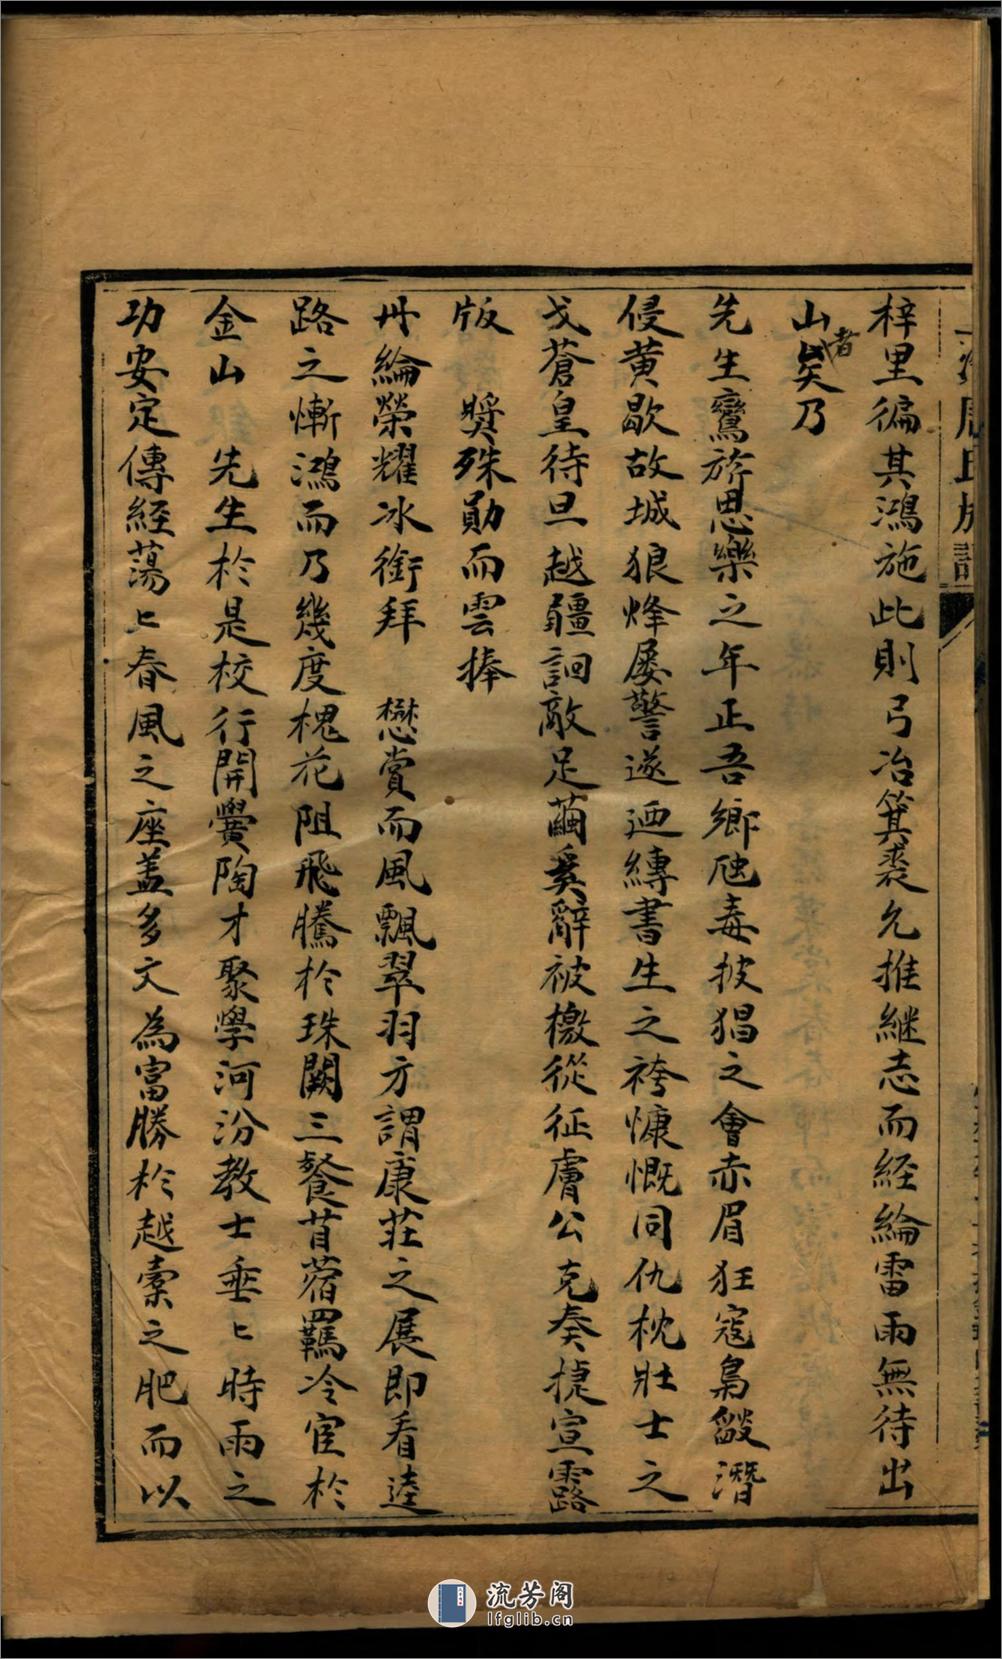 梓里徧其鴻施此則弓冶箕裘允推継志而経綸雷雨無待出
山者矣乃
先生鸞旂思樂之年正吾鄉虺毒披猖之會赤眉狂寇梟獍潛
侵黄歇故城狼烽屡警遂迺縳書生之袴慷慨同仇枕壯士之
戈蒼皇待旦越疆詗敵足繭奚辭被檄從征膚公克奏捷宣露
版　奬殊勛而雲捧
丹綸榮耀冰銜拜　懋賞而風飄翠羽方謂康莊之展即看逵
路之慚鴻而乃幾度槐花阻飛騰於珠闕三餐苜蓿羈冷宦於
金山　先生於是校行開黌陶才聚學河汾教士垂〻時雨之
功安定傳経蕩〻春風之座盖多文為富勝於越橐之肥而以
氏族譜
流芳阁
lfglib.cn